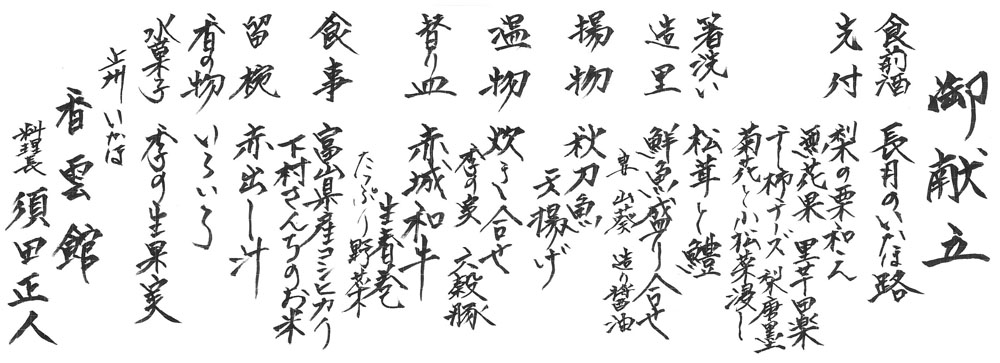 御献立
食前酒 長月のいかほ路
先付 梨の栗和え
無花果 里芋田楽
干し柿チーズ 梨唐墨
菊花と小松菜浸し
箸洗い 松茸と鱧
造里 鮮魚盛り合せ
妻 山葵 造り醤油
揚物 秋刀魚
天揚げ
温物 炊き合せ
季の実 六穀豚
替り皿 赤城和牛
生春巻
たっぷり野菜
食事 富山県産コシヒカリ
下村さんちのお米
留椀 赤出し汁
香の物 いろいろ
水菓子 季の生果実
上州いかほ
香雲館
料理長 須田正人